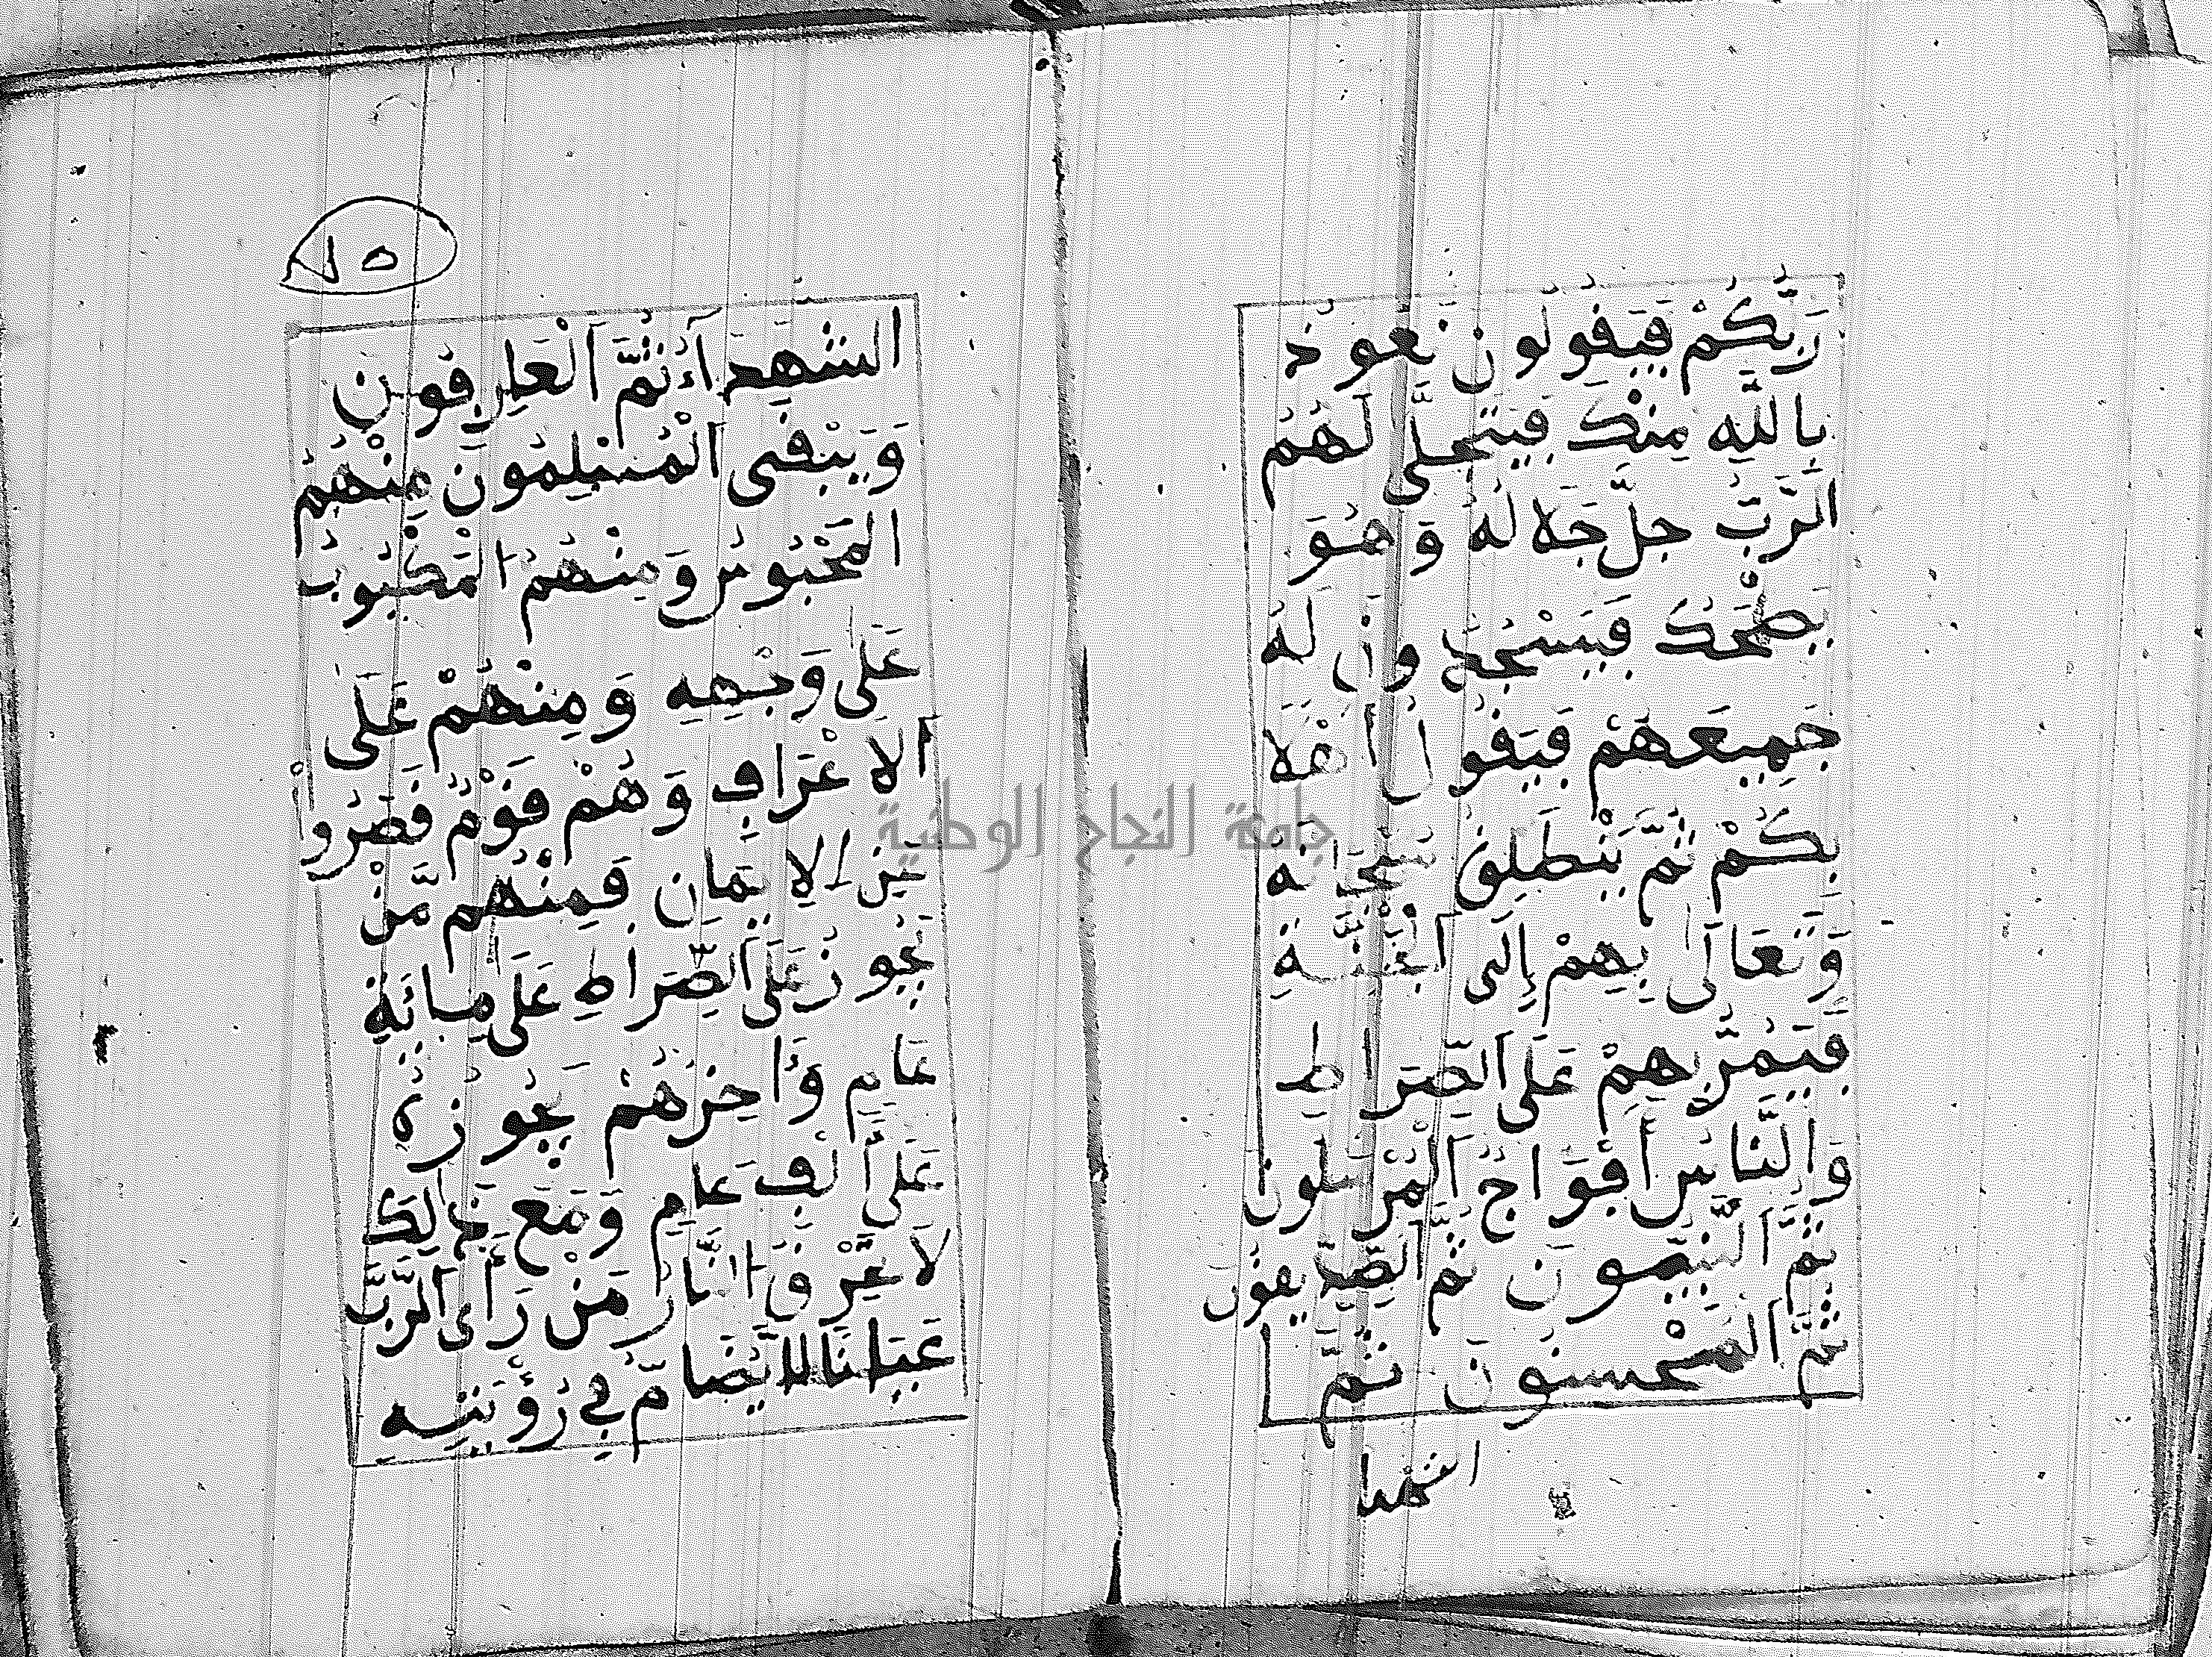 رَبُّكُمْ فَيَقُولُونَ نَعُوذُ
بِاللَّهِ مِنْكَ فَيَتَجَلَّى لَهُمُ
الرَّبُّ جَلَّ جَلَالُهُ وَهُوَ
يَضْحَكُ فَيَسْجُدُونَ لَهُ
جَمِيعُهُمْ فَيَقُولُ أَهْلًا
بِكُمْ ثُمَّ يَنْطَلِقُ سُبْحَانَهُ
وَتَعَالَى بِهِمْ إِلَى الْجَنَّةِ
فَيَمُرُّ بِهِمْ عَلَى الصِّرَاطِ
وَالنَّاسُ أَفْوَاجٌ الْمُرْسَلُونَ
ثُمَّ النَّبِيُّونَ ثُمَّ الصِّدِّيقُونَ
ثُمَّ الْمُحْسِنُونَ ثُمَّ ا
الشهدا
١٥
الشُّهَدَآءُ ثُمَّ الْعَارِفُونَ
وَيَبْقَى الْمُسْلِمُونَ مِنْهُمُ
الْمَحْبُوسُ وَمِنْهُمُ الْمَكْبُوبُ
عَلَى وَجْهِهِ وَمِنْهُمْ عَلَى
الْأَعْرَافِ وَهُمْ قَوْمٌ قَصُرُوا
عَنِ الْإِيمَانِ فَمِنْهُم مَّنْ
يَجُوزُ عَلَى الصِّرَاطِ عَلَى مِائَةِ
عَامٍ وَآخِرُهُمْ يَجُوزُهُ
عَلَى أَلْفِ عَامٍ وَمَعَ ذَالِكَ
لَا تَحْرِقُ النَّارُ مَنْ رَأَى الرَّبَّ
عَيَانًا لَا يُضَامُّ فِي رُؤْيَتِهِ
جامعة النجاح الوطنية